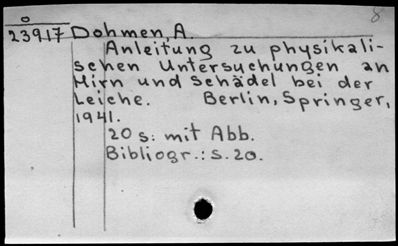 o 8
23917 Dohmen, A.
Anleitung zu physikali-
schen Untersuchungen an
Hirn und Schädel bei der
Leiche. Berlin, Springer,
1941.
20 s. mit Abb.
Bibliogr.: s. 20.